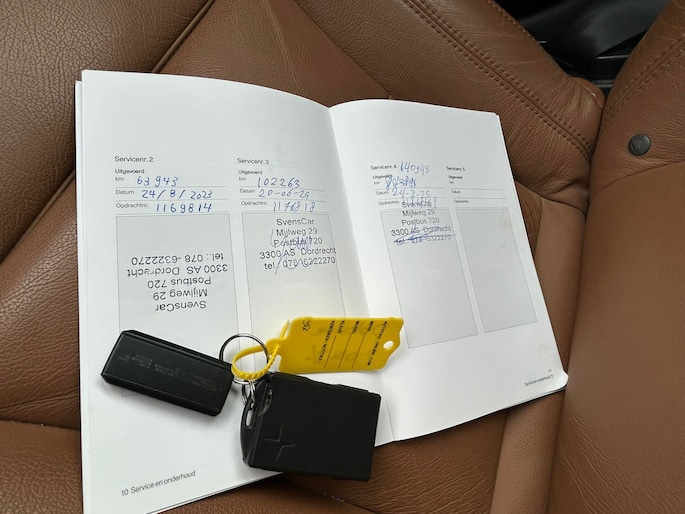 Servicenr. 2
Uitgevoerd
km 63943
Datum 24/8/2023
Opdrachtnr. 1169814
SvensCar
Mijlweg 29
Postbus 720
3300 AS Dordrecht
tel.: 078-6322270
10 Service en onderhoud
Servicenr. 3
Uitgevoerd
km 102263
Datum 20-06-24
Opdrachtnr. 1176818
SvensCar
Mijlweg 29
Postbus 720
3300 AS Dordrecht
tel.: 078-6322270
Servicenr. 4
Uitgevoerd
140945
km
Datum
Opdrachtnr.
SvensCar
Mijlweg 29
Postbus 720
3300 AS Dordrecht
tel.: 078-6322270
Servicenr. 5
Uitgevoerd
km
Datum
Opdrachtnr.
Service en onderhoud 11